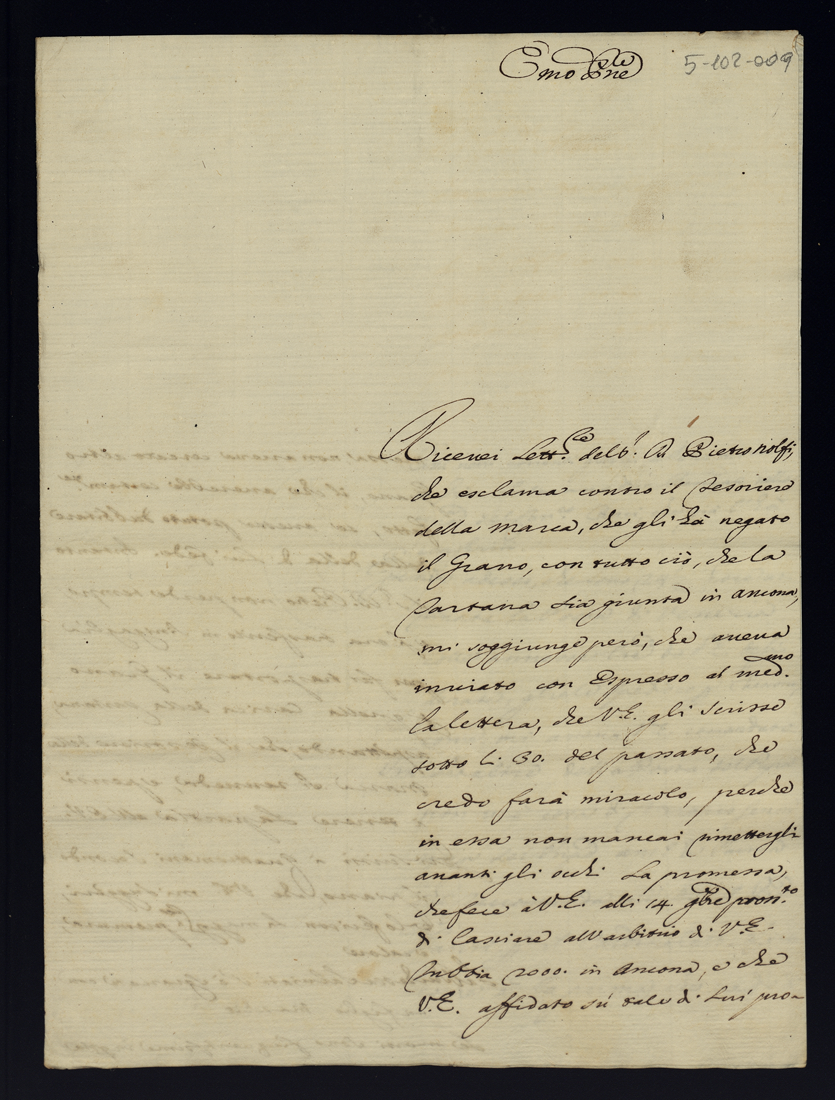 Emo Pne
5-102-009
Ricevei Lett.re del S.r Ab. Pietro nolfi,
che esclama contro il Tesoriere
della Marca, che gli hà negato
il Grano, con tutto ciò, che la
Tartana sia giunta in Ancona,
mi soggiunge però, che aveva
inviato con Espresso al med.mo
la lettera, che V.E. gli scrisse
sotto li 30. del passato, che
credo farà miracolo, perche
in essa non mancai rimettergli
avanti gli occhi la promessa,
che fece à V.E. alli 14. 9bre
di lasciare all'arbitrio di V.E.
Rubbia 2000. in Ancona, e che
V.E. affidato sù tale di Lui pro-